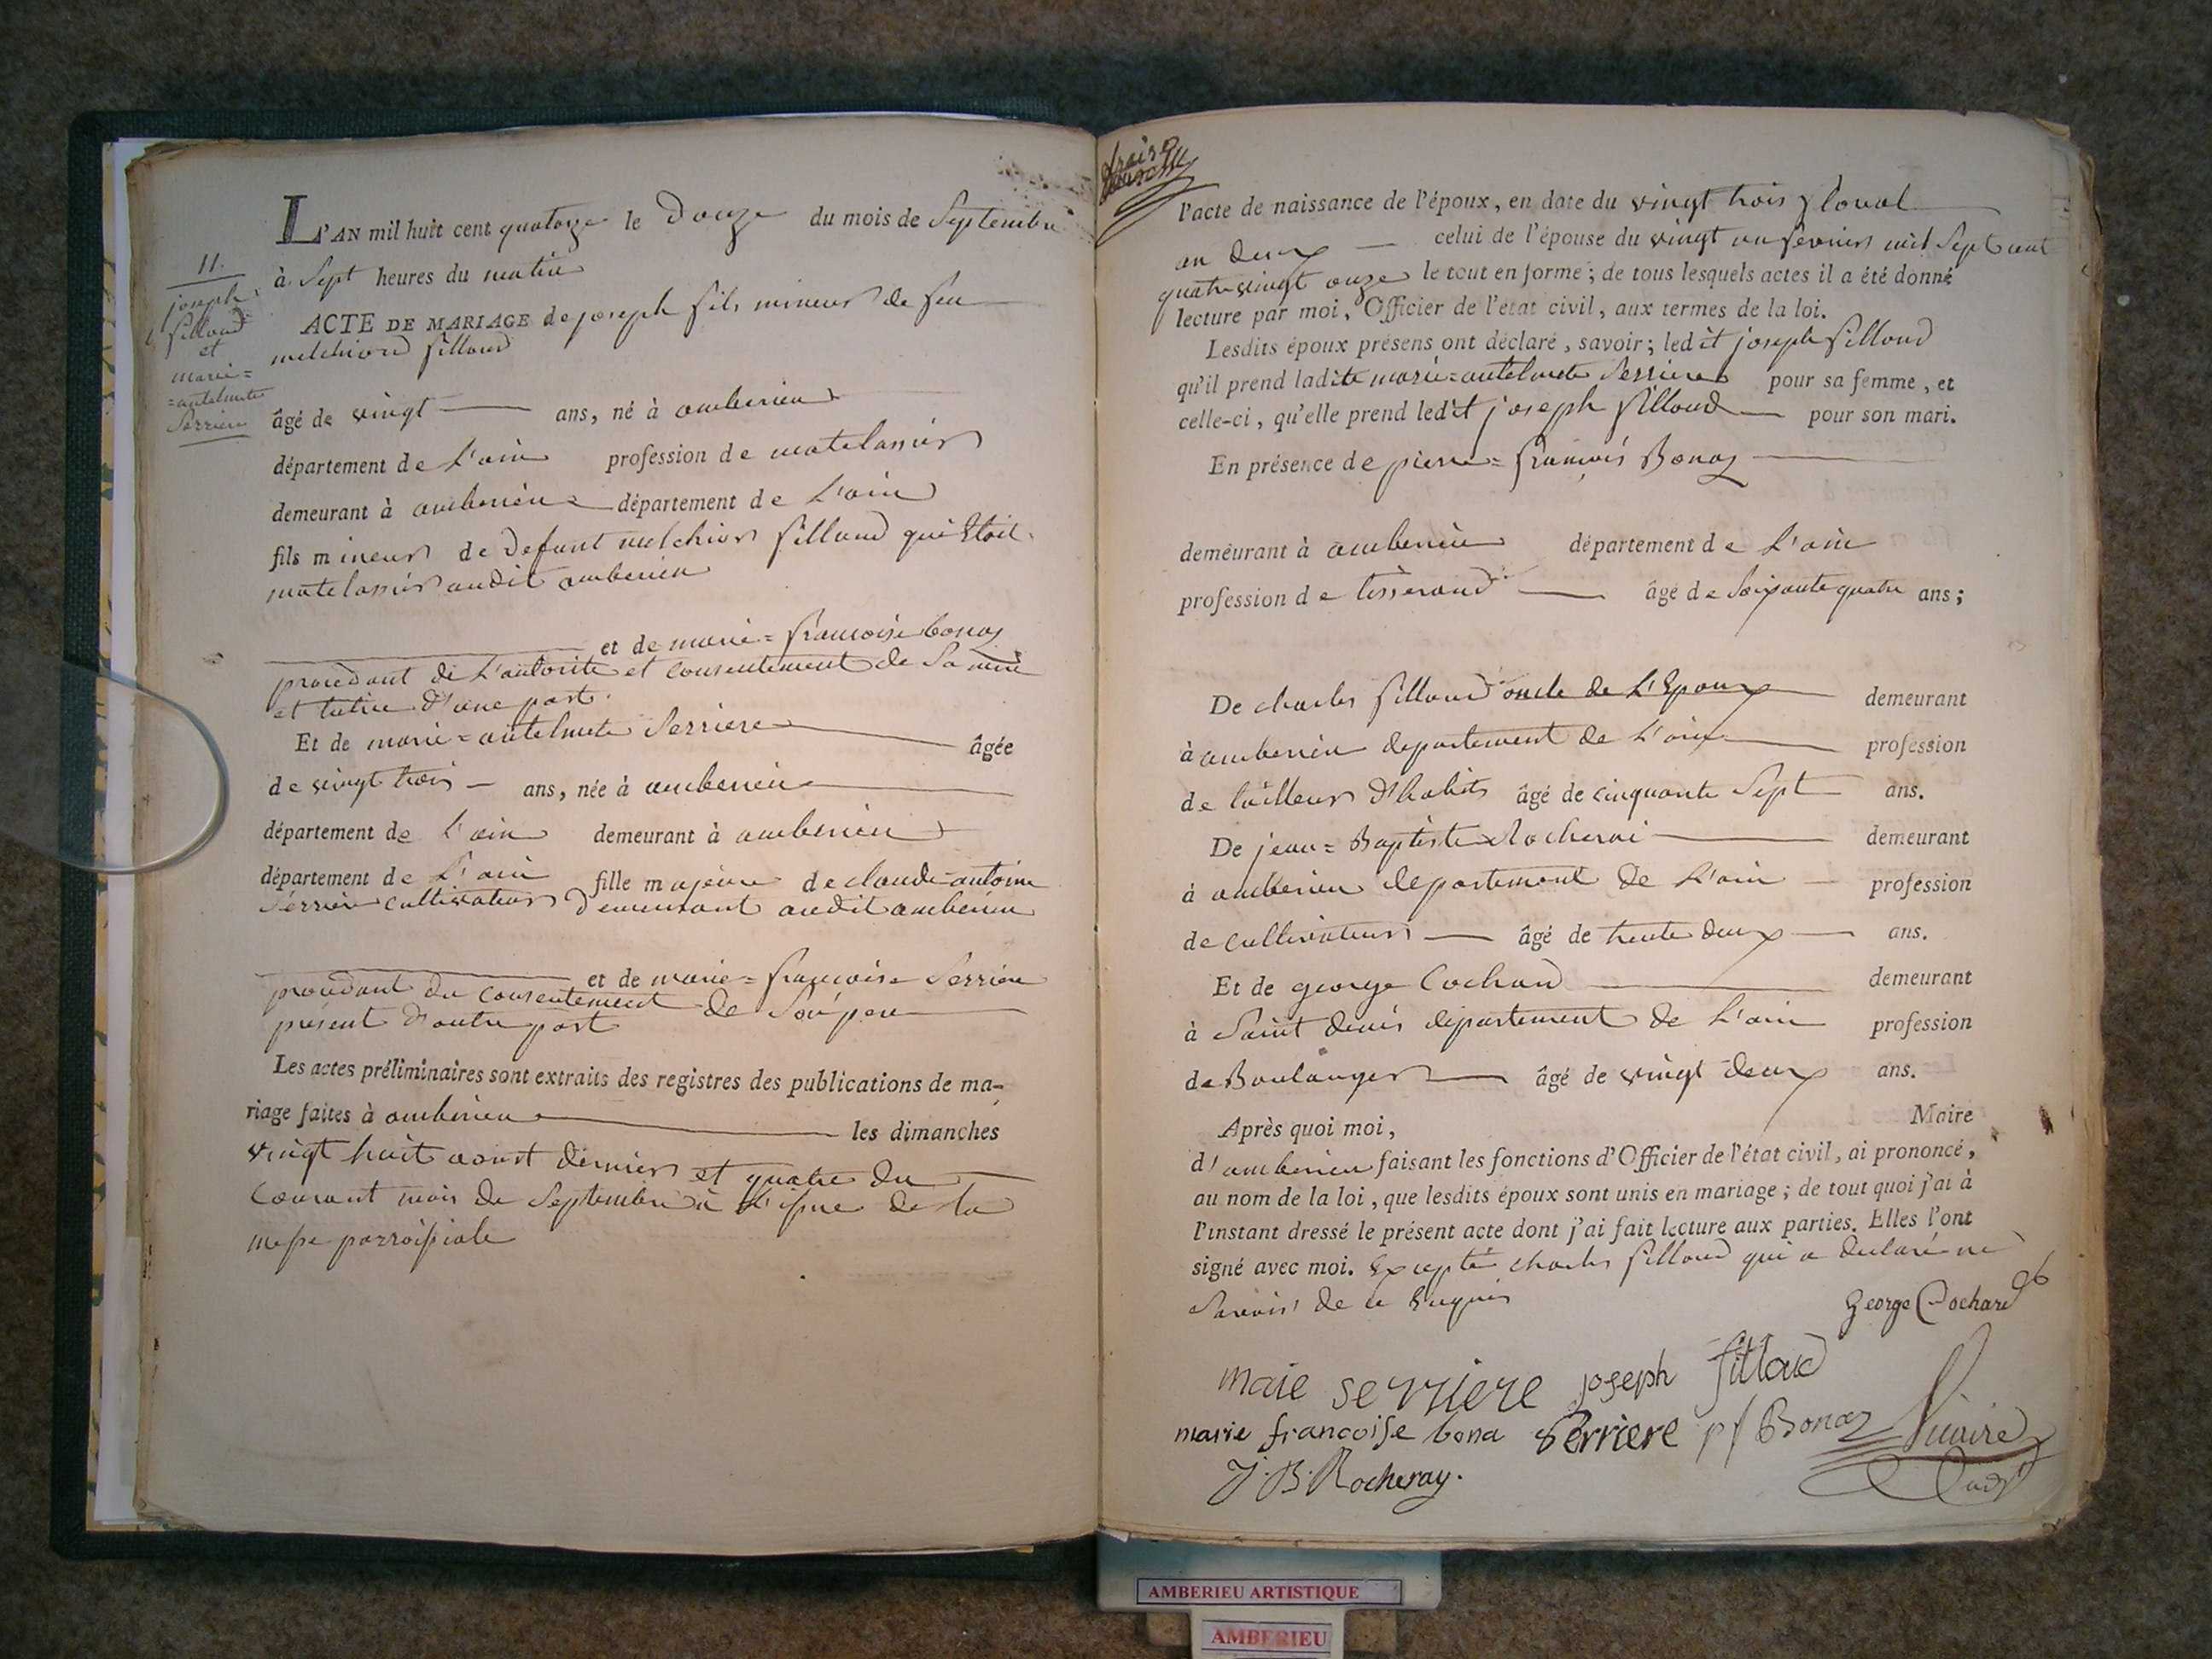 L'AN mil huit cent quatorze le Douze du mois de Septembre
à Sept heures du matin
11.
joseph
filloud
et
marie=
=antelmette
Serriere
ACTE DE MARIAGE de joseph fils mineur de feu
melchiord filloud
âgé de vingt ans, né à amberieu
département de L'ain profession de matelassier
demeurant à amberieu département de L'ain
fils mineur de Defunt melchior filloud qui Etoit
matelassier audit amberieu
et de marie=francoise bonaz
procedant de L'autorité et consentement de Sa mere
et tutrice D'une part.
Et de marie=antelmette Serriere âgée
de vingt trois ans, née à amberieu
département de L'ain demeurant à amberieu
département de L'ain fille majeure de claude=antoine
Serriere cultivateur Demeurant audit amberieu
et de marie=francoise Serriere
procedant du consentement de Son pere
present D'autre part
Les actes préliminaires sont extraits des registres des publications de ma-
riage faites à amberieu les dimanches
vingt huit aoust dernier et quatre du
Courant mois de Septembre à L'issue de la
messe parroissiale
l'acte de naissance de l'époux, en date du vingt trois floreal
an deux celui de l'épouse du vingt un fevrier mil Sept cent
quatre vingt onze le tout en forme; de tous lesquels actes il a été donné
lecture par moi, Officier de l'état civil, aux termes de la loi.
Lesdits époux présens ont déclaré, savoir; ledit joseph filloud
qu'il prend ladite marie=antelmette Serriere pour sa femme, et
celle-ci, qu'elle prend ledit joseph filloud pour son mari.
En présence de pierre=françois Bonaz
demeurant à amberieu département de L'ain
profession de tisserand âgé de Soixante quatre ans;
De charles filloud oncle de L'Epoux demeurant
à amberieu departement de L'ain profession
de tailleur D'habits âgé de cinquante Sept ans.
De jean=Baptiste Rocherai demeurant
à amberieu departement De L'ain profession
de cultivateur âgé de trente deux ans.
Et de george Cochard demeurant
à Saint denis departement de L'ain profession
de Boulanger âgé de vingt deux ans.
Après quoi moi, Maire
d'amberieu faisant les fonctions d'Officier de l'état civil, ai prononcé,
au nom de la loi, que lesdits époux sont unis en mariage; de tout quoi j'ai à
l'instant dressé le présent acte dont j'ai fait lecture aux parties. Elles l'ont
signé avec moi. Excepté charles filloud qui a declaré ne
Savoir de ce Enquis
George Cochard
maie serriere joseph filloud
marie francoise bona Serriere pf Bonaz
J. B. Rocheray.
AMBERIEU ARTISTIQUE
AMBERIEU